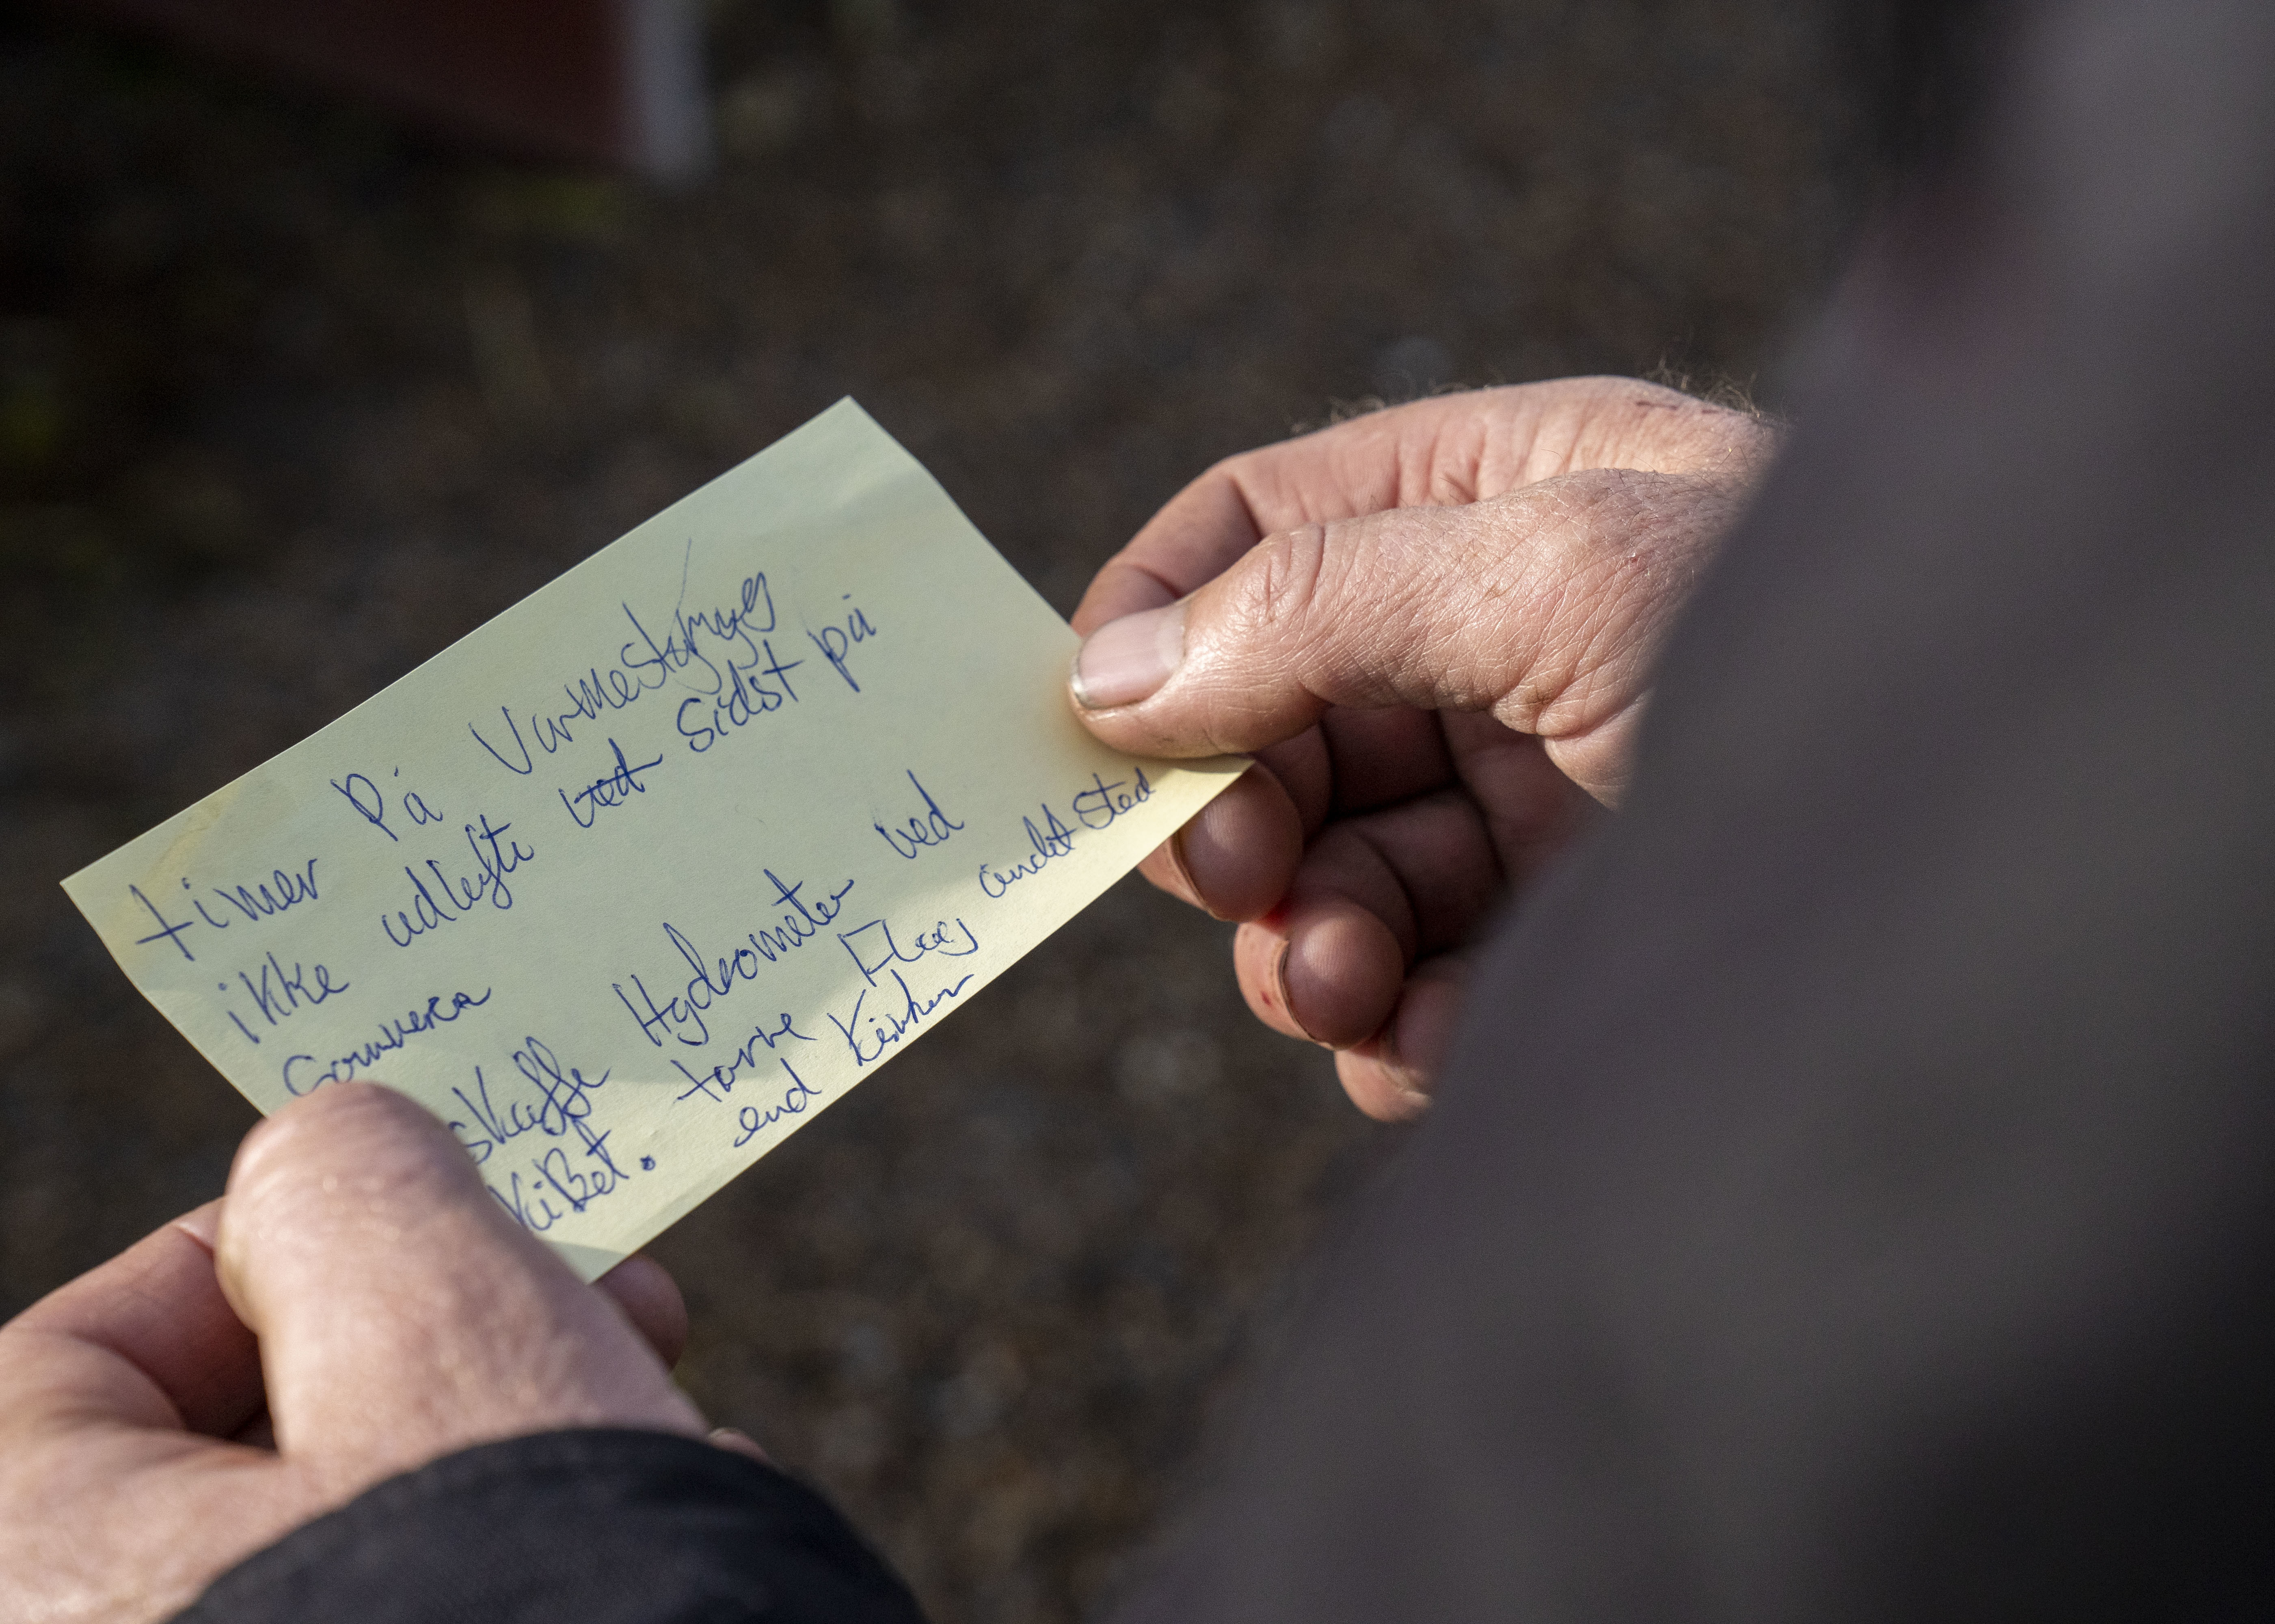 timer på Varmestyring
ikke udlufte ved sidst på
Sommeren
skaffe Hydrometer ved
tørre Flueg andet sted
KiBet. end Kirken